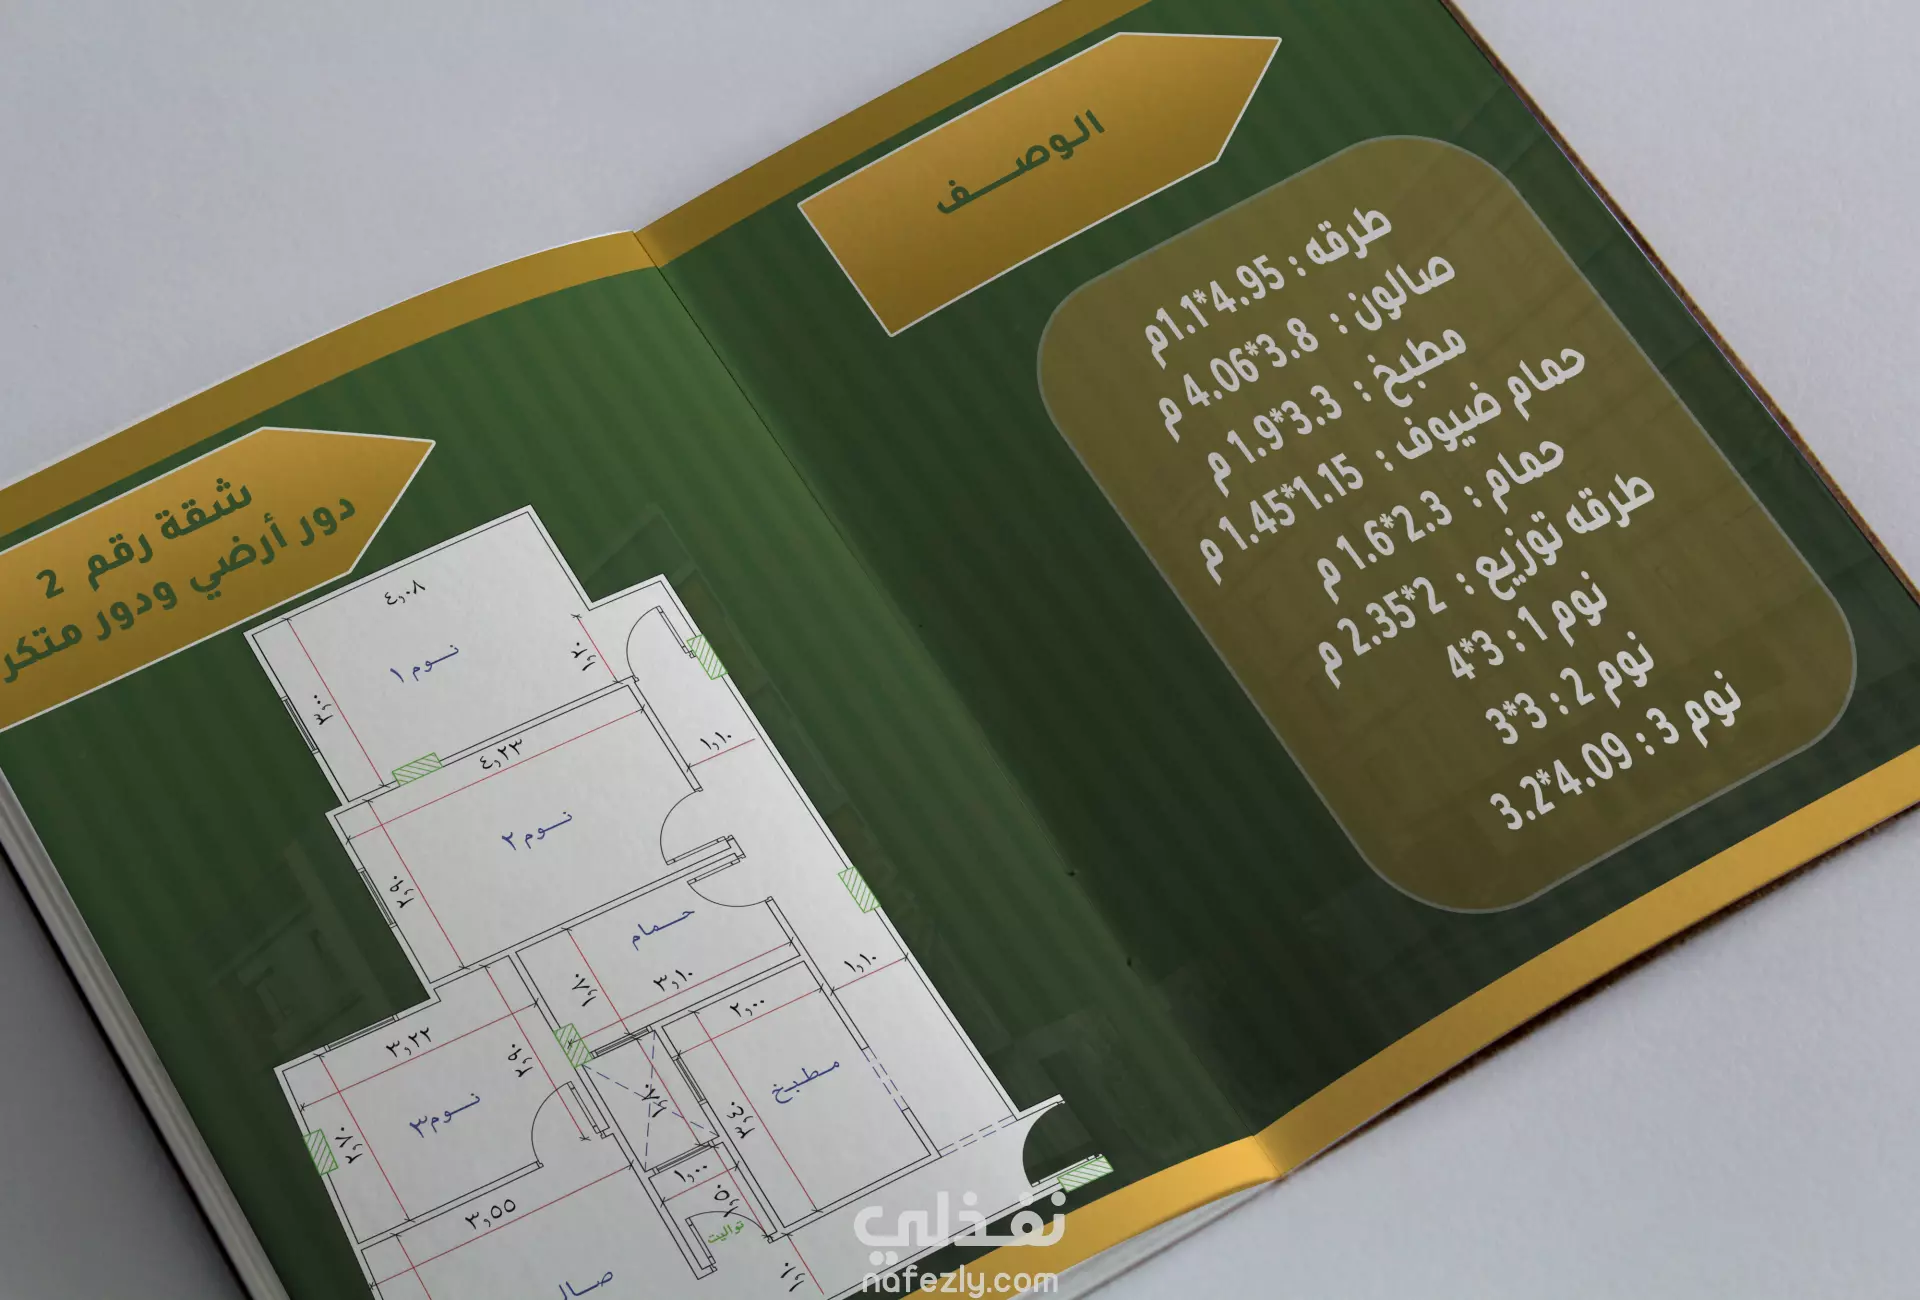 الوصف
طرقه : 4.95*1.1م
صالون : 3.8*4.06 م
مطبخ : 3.3*1.9 م
حمام ضيوف : 1.15*1.45 م
حمام : 2.3*1.6 م
طرقه توزيع : 2*2.35 م
نوم 1 : 3*4
نوم 2 : 3*3
نوم 3 : 4.09*3.2
شقة رقم 2
دور أرضي ودور متكر
٤,٠٨
نوم ١
٤,٢٣
١,١٠
نوم ٢
حمام
١,٨٠
٣,١٠
١,١٠
٢,٠٠
٣,٢٢
نوم٣
مطبخ
١,٨٠
١,٠٠
٣,٥٥
تواليت
صال
١,١٠
نفذلي
nafezly.com